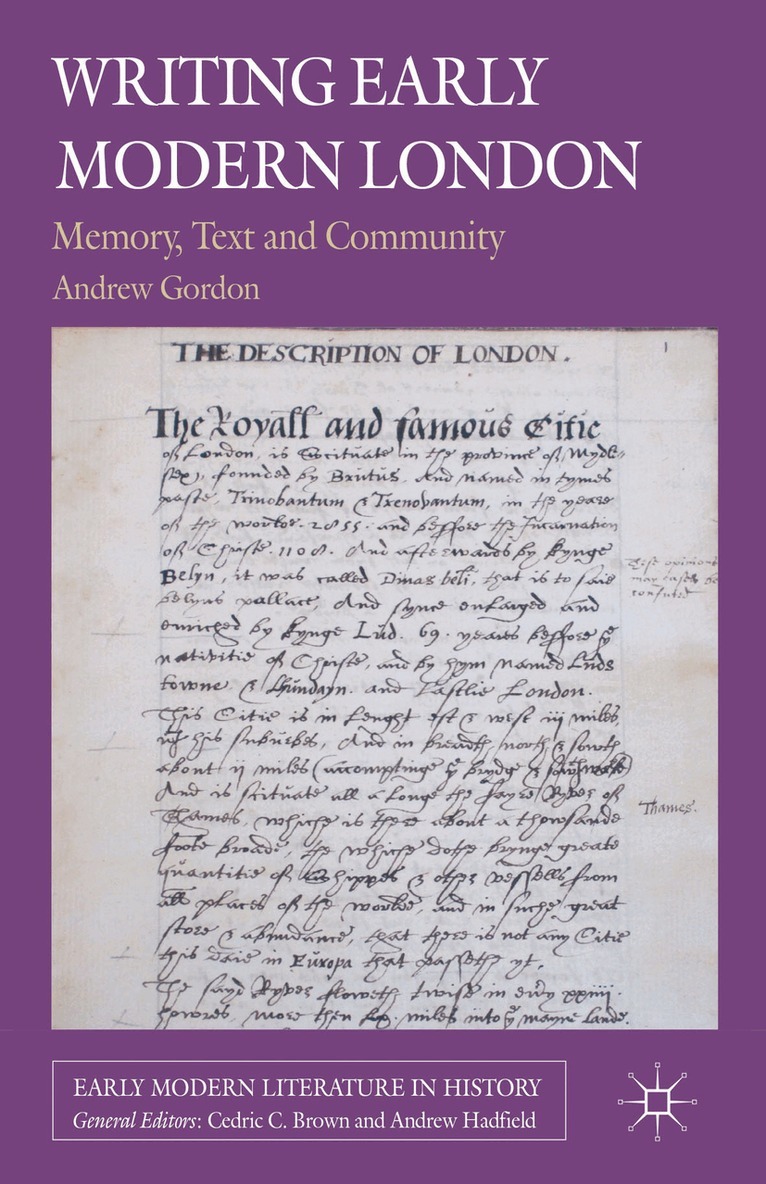 WRITING EARLY
MODERN LONDON
Memory, Text and Community
Andrew Gordon
THE DESCRIPTION OF LONDON.
1
The Royall and famous Citie
of London, is Scituate in the province of Mydle-
sex, founded by Brutus. And named in tymes
paste, Trinobantum & Trenovantum, in the yeare
of the worlde. 2855. and beffore the Incarnation
of Christe. 1108. And afterwards by kynge
Belyn, it was called Dinas beli, that is to saie
belyns pallace, And synce enlarged and
enriched by kynge Lud. 69. yeares beffore ye
nativitie of Christe, and by hym named Luds
towne & Lhundayn. and Lastlie London.
These opinions
may easely be
confuted
This Citie is in Lenght est & west iij miles,
his suburbes, And in breadth, north & south
about ij miles (accomptinge ye brydge & southwarke)
And is scituate all a Longe the fayre Ryver of
Thames, whiche is there about a thowsande
foote broade, the whiche dothe brynge greate
quantitie of Shippes & other vessells from
all places of the worlde, and in suche great
store & abundance, that there is not any Citie
this daie in Europa that passethe yt.
Thames.
The sayd Ryver floweth twise in every xxiiij.
howres, more then lx. miles into ye mayne lande.
EARLY MODERN LITERATURE IN HISTORY
General Editors: Cedric C. Brown and Andrew Hadfield